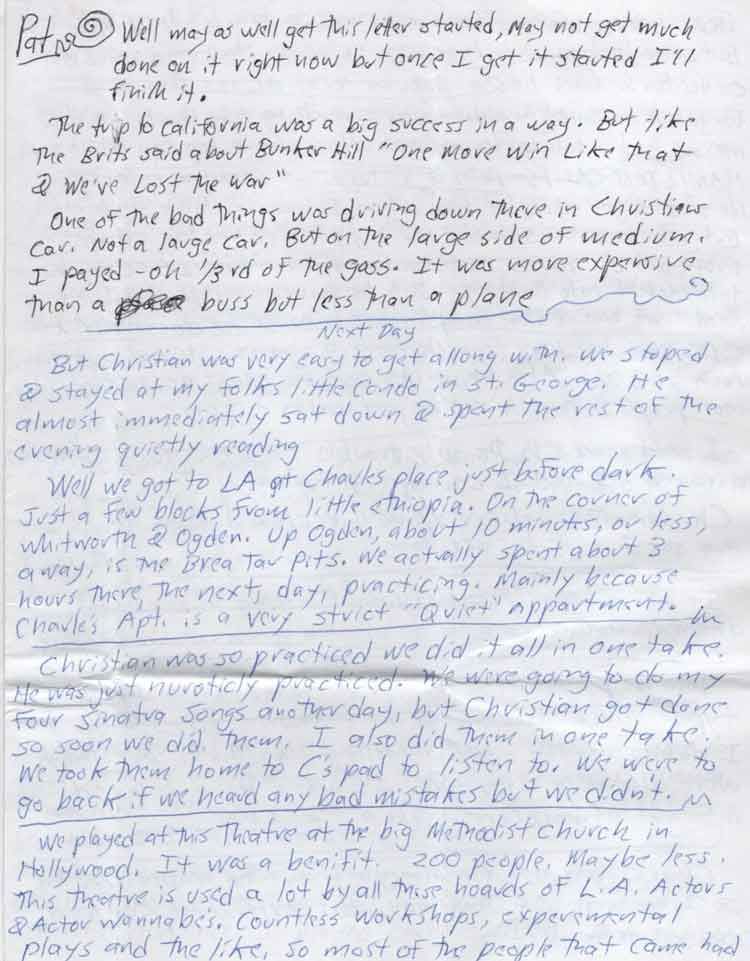 Pat Well may as well get this letter started, May not get much
done on it right now but once I get it started I'll
finish it.
The trip to california was a big success in a way. But like
The Brits said about Bunker Hill "One More Win Like that
& We've Lost the War"
One of the bad Things was driving down there in Christians
Car. Not a large car. But on the large side of medium.
I payed - oh 1/3 rd of the gass. It was more expensive
than a buss but less than a plane
Next Day
But Christian was very easy to get allong with. We stoped
& stayed at my folks little Condo in St. George. He
almost immediately sat down & spent the rest of the
evening quietly reading
Well we got to LA at Charles place just before dark.
Just a few blocks from little ethiopia. On the corner of
Whitworth & Ogden. Up Ogden, about 10 minutes, or less,
away, is the Brea Tar Pits. We actually spent about 3
hours there the next day, practicing. Mainly because
Charle's Apt. is a very strict "Quiet" appartment.
Christian was so practiced we did it all in one take.
He was just nuroticly practiced. We were going to do my
Four Sinatra Songs another day, but Christian got done
so soon we did them. I also did them in one take.
We took them home to C's pad to listen to. We were to
go back if we heard any bad mistakes but we didn't.
We played at this Theatre at the big Methodist church in
Hollywood. It was a benifit. 200 people. Maybe less.
This theatre is used a lot by all these hoards of L.A. Actors
& Actor wannabe's. Countless workshops, experemental
plays and the like, so most of the people that came had